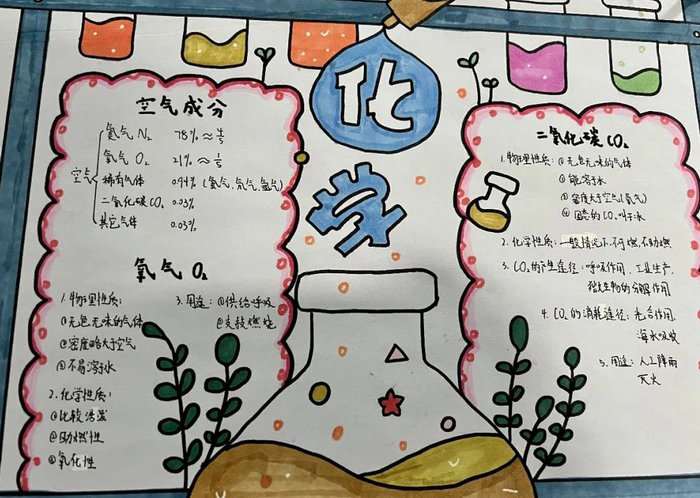 化
学
空气成分
空气
氮气 N₂ 78% ≈ 4/5
氧气 O₂ 21% ≈ 1/5
稀有气体 0.94% (氦气、氖气、氩气)
二氧化碳 CO₂ 0.03%
其它气体 0.03%
氧气 O₂
1.物理性质:
①无色无味的气体
②密度略大于空气
③不易溶于水
2.化学性质:
①比较活泼
②助燃性
③氧化性
3.用途:①供给呼吸
②支持燃烧
二氧化碳 CO₂
1.物理性质:①无色无味的气体
②能溶于水
③密度大于空气(氧气)
④固态的CO₂叫干冰
2.化学性质:一般情况下不可燃、不助燃
3.CO₂的产生途径:呼吸作用、工业生产、
微生物的分解作用
4.CO₂的消耗途径:光合作用、
海水吸收
5.用途:人工降雨
灭火